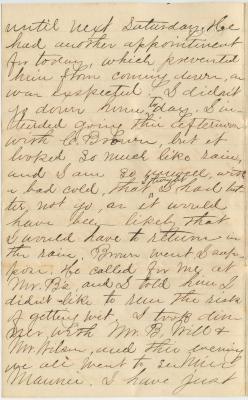 until next Saturday, He
had another appointment
for today, which prevented
him from coming down, as
was expected. I didn't
go down home today. I in-
tended going this afternoon
with C. Brown, but it
looked so much like rain,
and I am so with
a bad cold, that I had bet-
ter, not go, as it would
have been likely that
I would have to return in
the rain, Brown went I sup-
pose. He called for me, at
Mr. B's, and I told him I
didn't like to run the risk
of getting wet. I took din-
ner with Mr. B, Will &
Mr Wilson, and this evening
we all went to see Miss
I have just